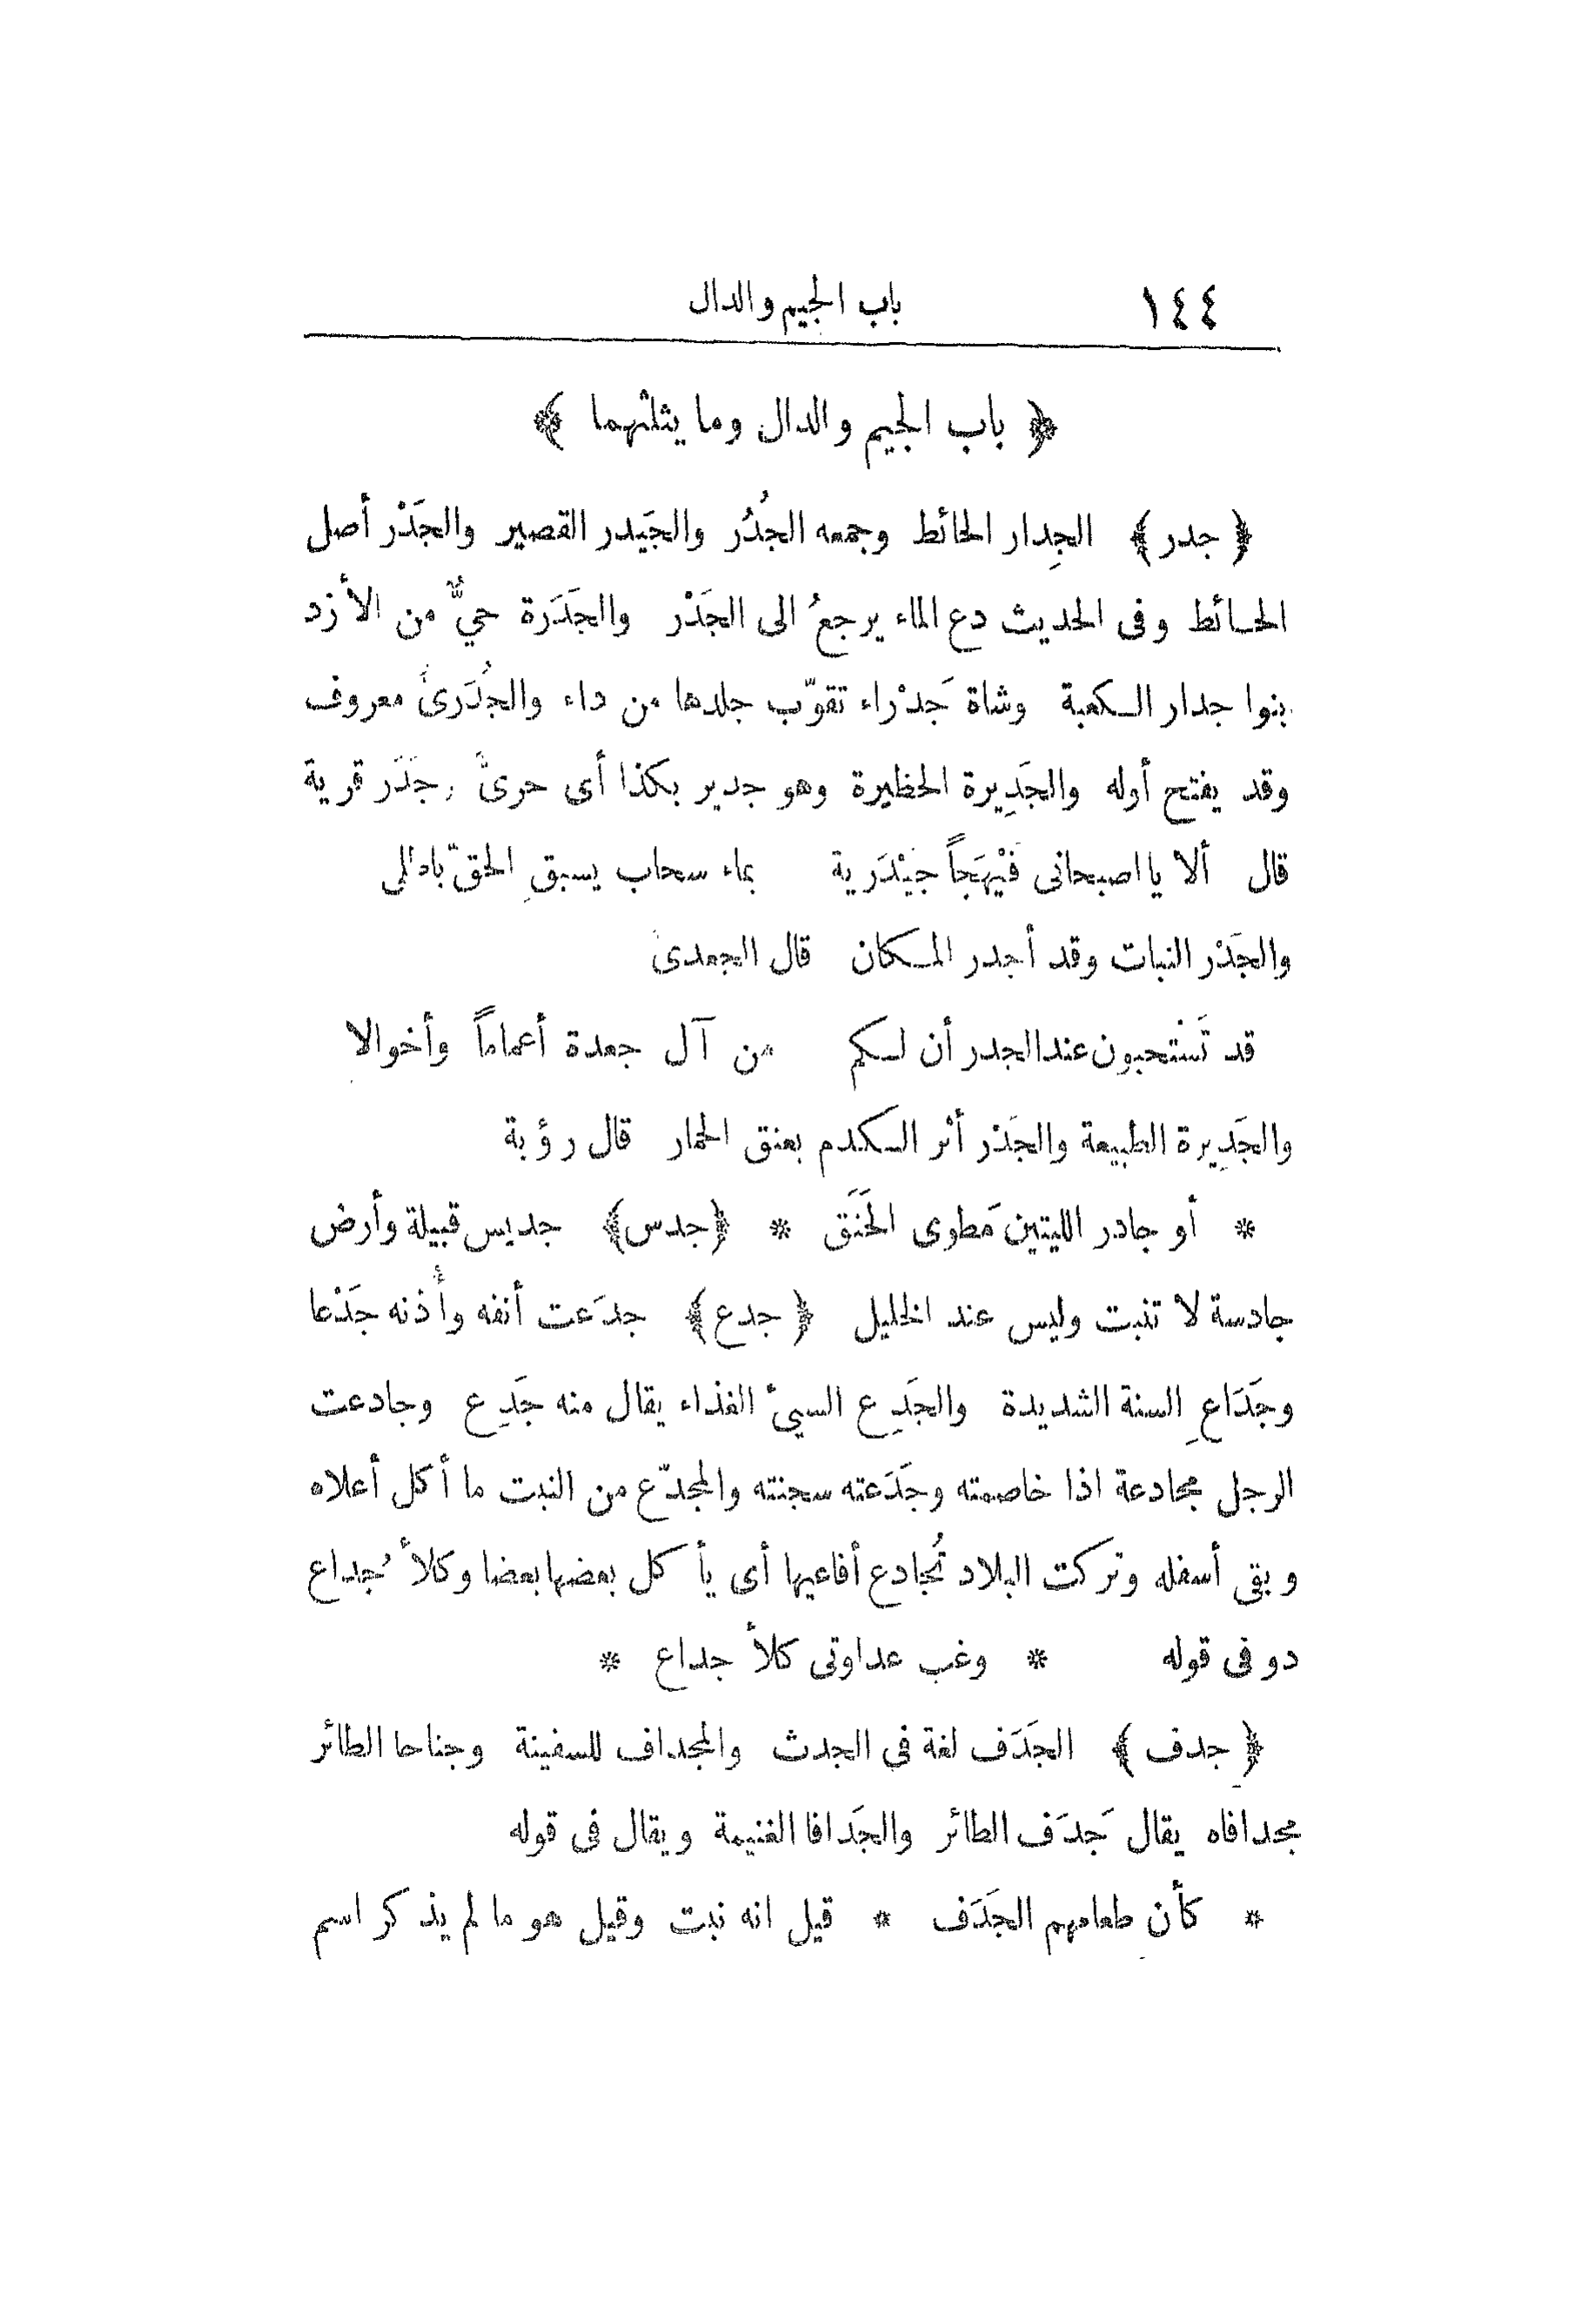 ١٤٤ باب الجيم والدال
﴿ باب الجيم والدال وما يثلثهما ﴾
﴿ جدر ﴾ الجِدار الحائط وجمعه الجُدُر والجَيدر القصير والجَدْر أصل
الحائط وفى الحديث دع الماء يرجعُ الى الجَدْر والجَدَرة حيٌّ من الأزد
بنوا جدار الكعبة وشاة جَدْراء تقوّب جلدها من داء والجُدَرىّ معروف
وقد يفتح أوله والجَدِيرة الحظيرة وهو جدير بكذا أى حرىّ وجَدَر قرية
قال ألا يا اصبحانى فَيْهَجاً جَيْدَرية بماء سحاب يسبقِ الحقّ باطلى
والجَدْر النبات وقد أجدر المكان قال الجعدى
قد تَسْتحبون عند الجدر أن لكم من آل جعدة أعماماً وأخوالا
والجَدِيرة الطبيعة والجَدْر أثر الكدم بعنق الحمار قال رؤبة
* أو جادر الليتين مَطوى الحَنَق * ﴿جدس﴾ جديس قبيلة وأرض
جادسة لا تنبت وليس عند الخليل ﴿ جدع ﴾ جدَعت أنفه وأُذنه جَدْعا
وجَدَاعِ السنة الشديدة والجَدِع السيئ الغذاء يقال منه جَدِع وجادعت
الرجل مجادعة اذا خاصمته وجَدَعته سجنته والمجدّع من النبت ما أكل أعلاه
وبقى أسفله وتركت البلاد تُجادع أفاعيها أى يأكل بعضها بعضا وكلأ جُداع
دو فى قوله * وغب عداوتى كلأ جداع *
﴿ جدف ﴾ الجَدَف لغة فى الجدث والمجداف للسفينة وجناحا الطائر
مجدافاه يقال جَدَف الطائر والجَدافا الغنيمة ويقال فى قوله
* كأن طعامهم الجَدَف * قيل انه نبت وقيل هو ما لم يذكر اسم